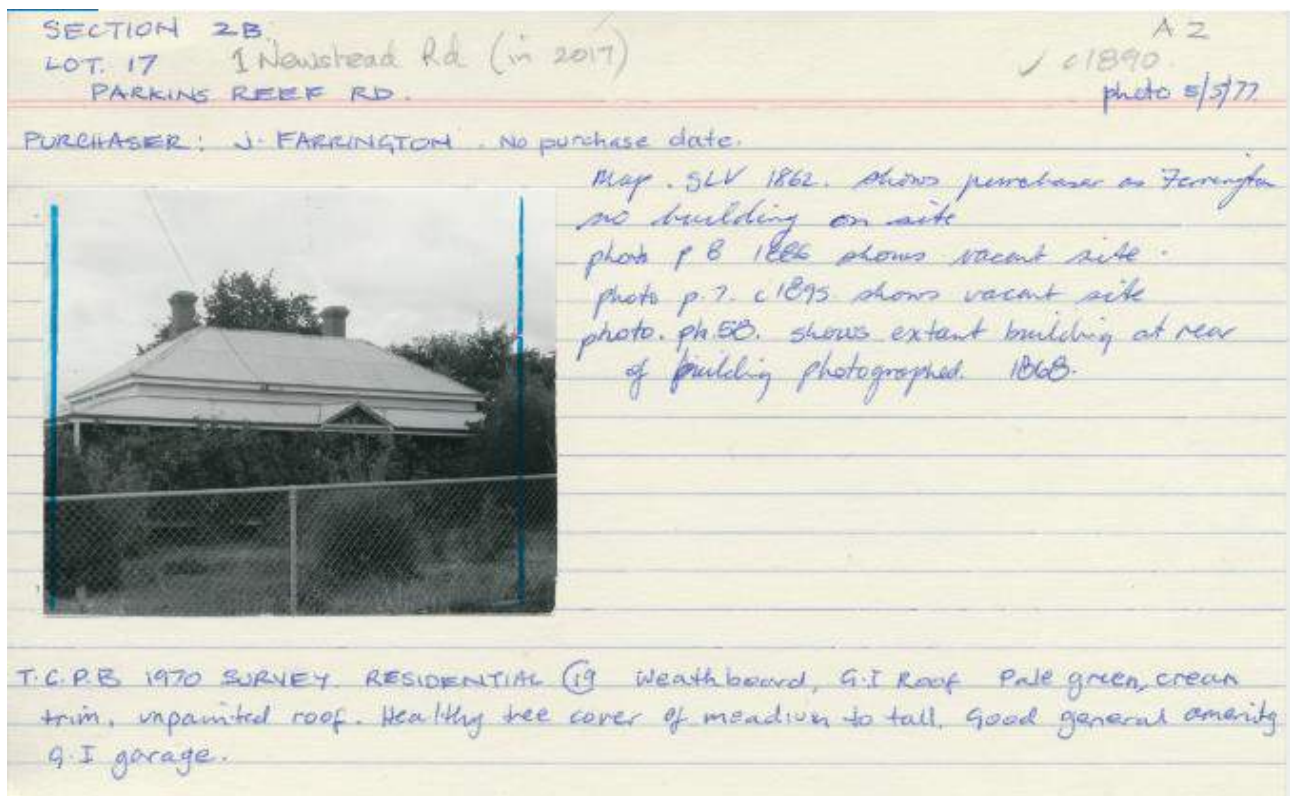 SECTION 2B.
A2
LOT. 17 1 Newstead Rd (in 2017)
✓ c1890.
PARKINS REEF RD.
photo 5/5/77.
PURCHASER: J. FARRINGTON. No purchase date.
Map. SLV 1862. shows purchaser as Ferrington
no building on site
photo p 8 1886 shows vacant site.
photo p. 7. c1895 shows vacant site
photo. ph. 58. shows extant building at rear
of building photographed. 1868.
T.C.P.B 1970 SURVEY. RESIDENTIAL (19) Weathboard, G.I Roof Pale green, cream
trim, unpainted roof. Healthy tree cover of meadium to tall. Good general amenity
G.I garage.